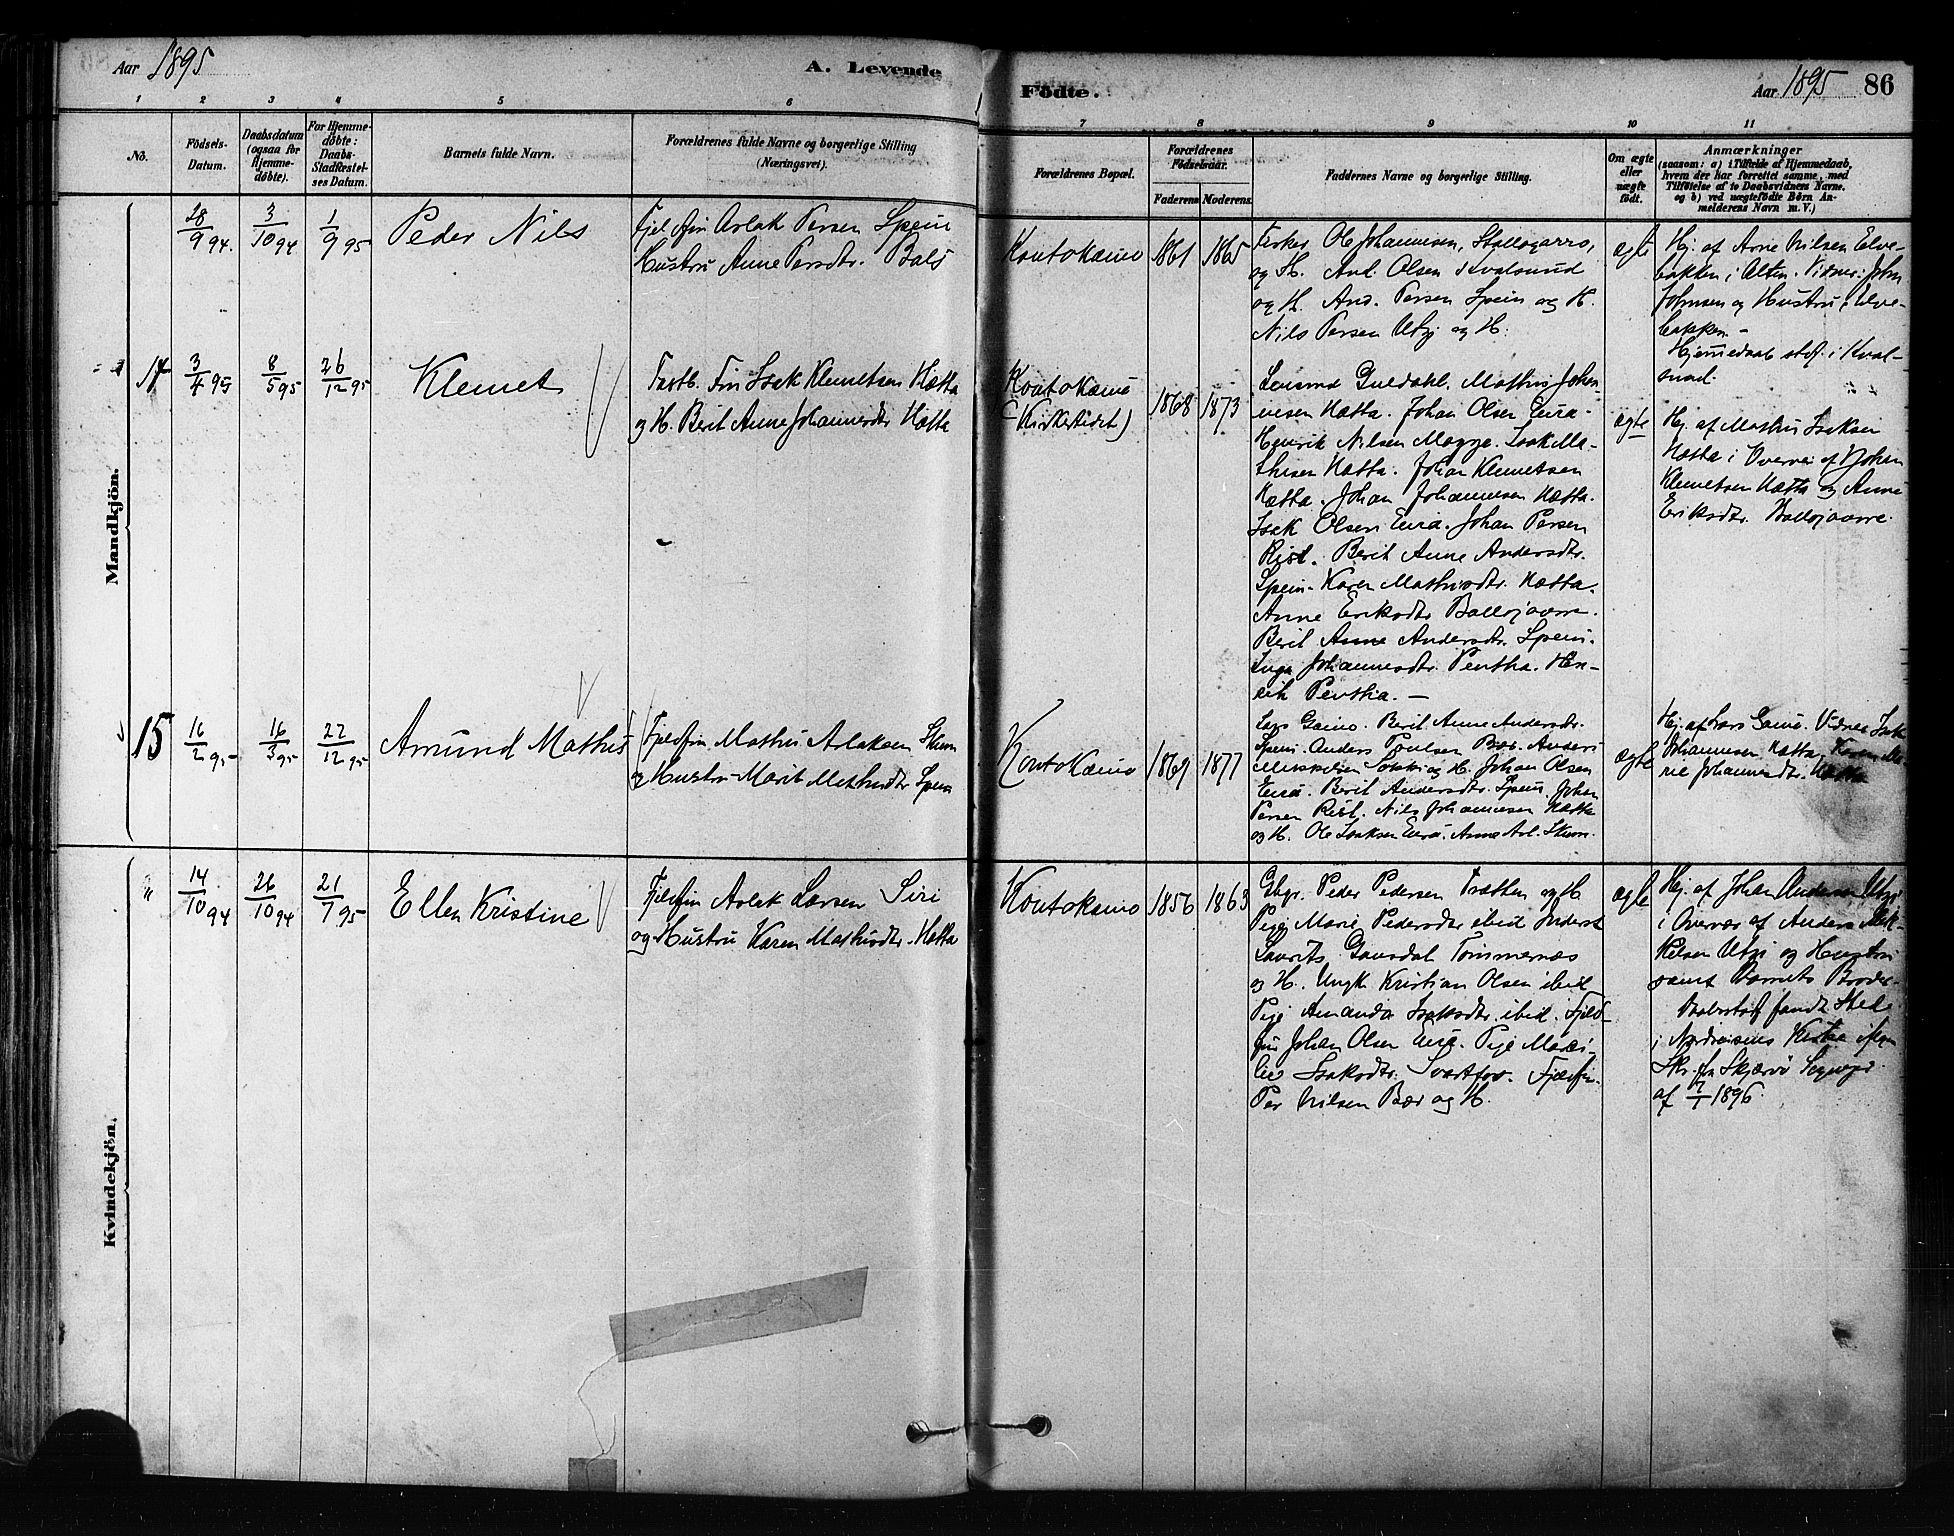 Aar 1895
A. Levende
Födte.
Aar 1895
86
1 2 3 4 5 6 7 8 9 10 11
No.
Födsels-
Datum.
Daabsdatum
(ogsaa for
Hjemme-
döbte).
For Hjemme-
döbte:
Daabs-
Stadfæstel-
ses Datum.
Barnets fulde Navn.
Forældrenes fulde Navne og borgerlige Stilling
(Næringsvei).
Forældrenes Bopæl.
Forældrenes
Födselsaar.
Faderens
Moderens
Faddernes Navne og borgerlige Stilling.
Om ægte
eller
uægte
födt.
Anmærkninger
(saasom: a) i Tilfælde af Hjemmedaab,
hvem der har forrettet samme, med
Tilföielse af to Daabsvidners Navne.
og b) ved uægtefödte Börn An-
melderens Navn m.V.)
Mandkjön.
28/9 94.
3/10 94
1/9 95
Peder Nils
Fjelfin Aslak Persen Spein
Hustru Anne Persdtr. Bals
Koutokæino
1861
1865
Fisker Ole Johannesen, Stallogarro,
og H. Ant. Olsen Kvalsund
og H. And. Persen Spein og H.
Nils Persen Utzi og H.
ægte
Hj. af Arne Nilsen Elve-
bakken i Alten. Vidner: John
Johnsen og Hustru, Elve-
bakken. -
Hjemmedaab stof. i Kval-
sund.
14
3/4 95
8/5 95
26/12 95
Klemet
Fastb. Fin Isak Klemetsen Hætta
og H. Berit Anne Johannesdtr Hætta
Koutokæino
(Kirkestedet)
1868
1873
Lensmd Guldahl. Mathis Johan-
nesen Hætta. Johan Olsen Eira-
Henrik Nilsen Magga. Isak Ma-
thisen Hætta. Johan Klemetsen
Hætta. Johan Johannesen Hætta.
Isak Olsen Eira. Johan Persen
Rist. Berit Anne Andersdtr.
Spein- Karen Mathisdtr Hætta.
Anne Eriksdtr Ballojaavre.
Berit Anne Andersdtr. Spein.
Inga Johannesdtr. Pentha. Hen-
rik Pentha. -
ægte
Hj. af Mathis Isaksen
Hætta i Overvær af Johan
Klemetsen Hætta og Anne
Eriksdtr. Ballojaavre.
15
16/2 95
16/3 95
22/12 95
Amund Mathis
Fjeldfin Mathis Aslaksen Skum
og Hustru Marit Mathisdtr Spein
Koutokæino
1869
1877
Lars Gaino. Berit Anne Andersdtr.
Spein. Anders Poulsen Bær. Anders
Mikkelsen Sokki og H. Johan Olsen
Eira. Berit Andersdtr. Spein. Johan
Persen Rist. Nils Johannesen Hætta
og H. Ole Isaksen Eira. Anne Asl. Skum.
ægte
Hj. af Lars Gaino. Vidner Isak
Johannesen Hætta, Karen Ma-
rie Johannesdtr. Hætta
Kvindekjön.
"
14/10 94
26/10 94
21/7 95
Ellen Kristine
Fjeldfin Aslak Larsen Siri
og Hustru Karen Mathisdtr. Hætta
Koutokæino
1856
1863
Gbgr. Peder Pedersen Trætten og H
Pige Marie Pedersdtr ibid Inderst
Laurits Gausdal Tømmernæs
og H. Ungk. Kristian Olsen ibid
Pige Amanda Isaksdtr. ibid. Fjeld-
fin Johan Olsen Eira. Pige Maxi-
lie Isaksdtr. Svartfos. Fjeldfin
Per Nilsen Bær og H.
ægte
Hj. af Johan Andersen Utzi
i Overvær af Anders Mik-
kelsen Utzi og Hustru
samt Barnets Broder.
Daabstadf fandt Sted
i Nordreisens Kirke iflgn
Skr. fra Skjærvø Sognepr.
af 7/1 1896.